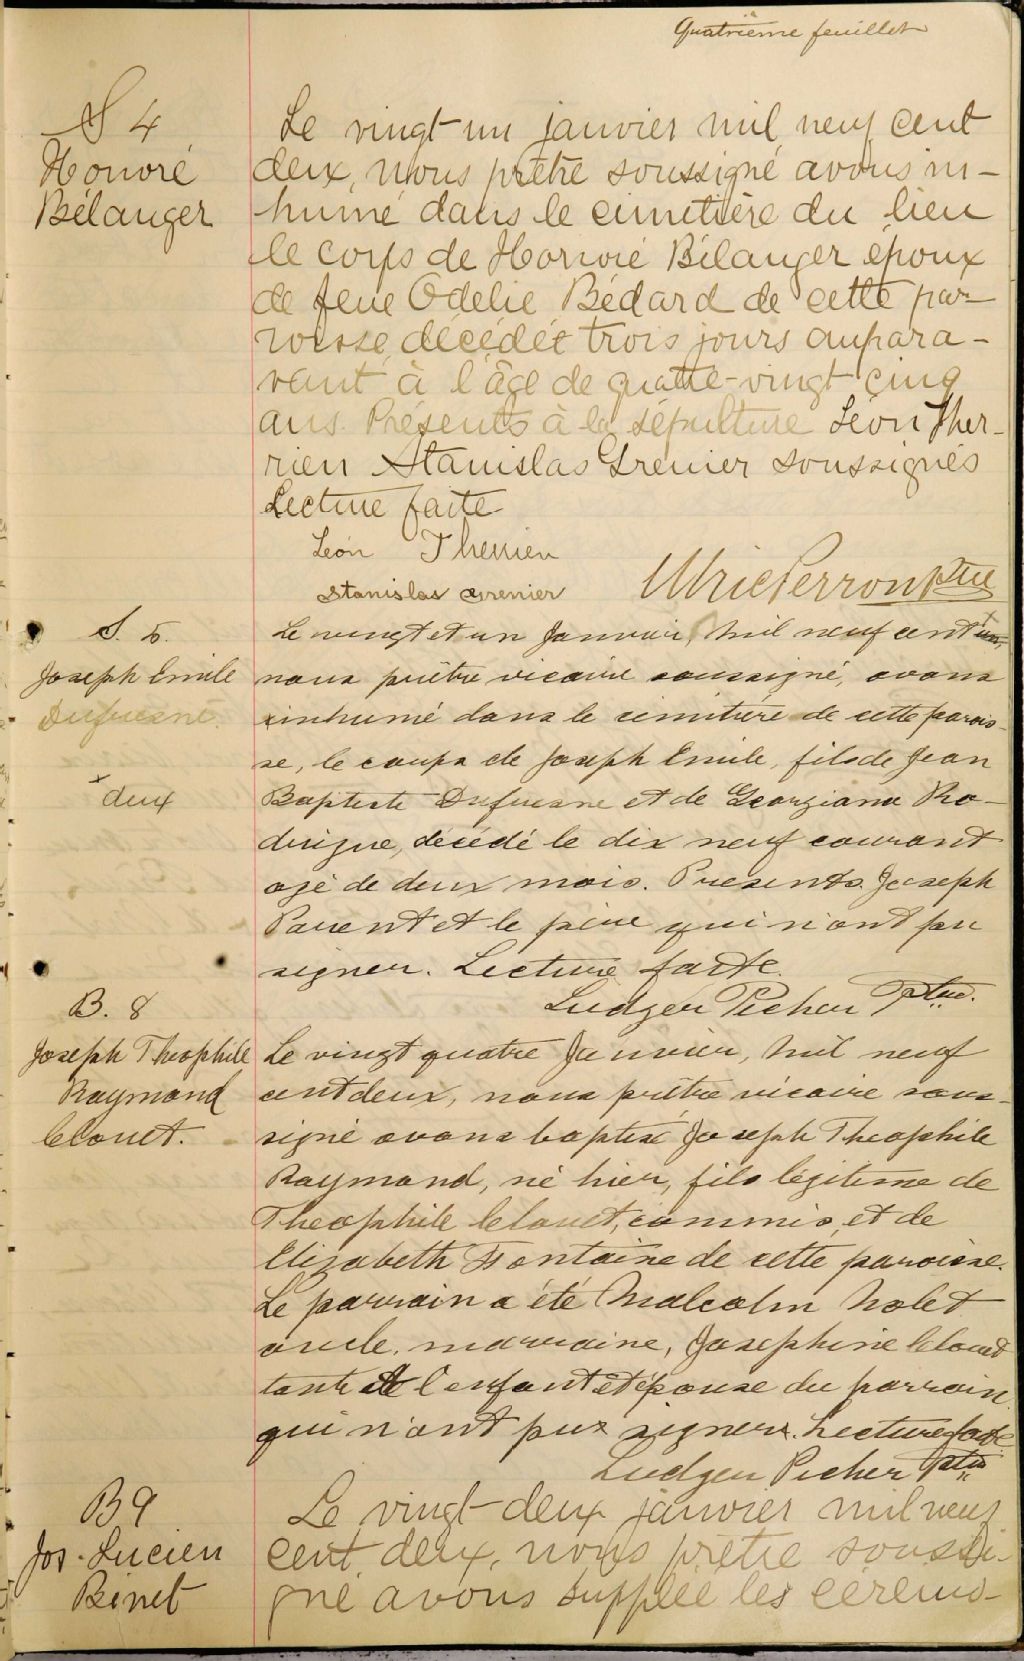 Quatrième feuillet
S 4
Honoré
Bélanger
Le vingt-un janvier mil neuf cent
deux, nous prêtre soussigné avons in-
humé dans le cimetière du lieu
le corps de Honoré Bélanger époux
de feue Odelie Bédard de cette par-
roisse, décédée trois jours aupara-
vant à l'âge de quatre-vingt cinq
ans. Présents à la sépulture Léon Ther-
rien Stanislas Grenier soussignés
Lecture faite
Léon Therrien
Stanislas Grenier
Ulric Perron ptre
S. 5.
Joseph Emile
Dufresne
x deux
Le vingt et un Janvier, mil neuf cent x
nous prêtre vicaire soussigné, avons
inhumé dans le cimitière de cette parois-
se, le coups de Joseph Emile, fils de Jean
Baptiste Dufresne et de Georgiana Ro-
drigue, décédé le dix neuf courant
agé de deux mois. Presents. Joseph
Parent et le père qui n'ont pu
signer. Lecture faite.
Ludger Picher Ptre.
B. 8
Joseph Théophile
Raymond
Clouet.
Le vingt quatre Janvier, mil neuf
cent deux, nous prêtre vicaire sous-
signé avons baptisé Joseph Theophile
Raymond, né hier, fils légitime de
Theophile Clouet, commis, et de
Elizabeth Fontaine de cette paroisse.
Le parrain a été Malcolm Nolet
oncle. marraine, Josephine Clouet
tante de l'enfant et épouse du parrain.
qui n'ont pu signer. Lecture faite
Ludger Picher Ptre
B 9
Jos. Lucien
Binet
Le vingt-deux janvier mil neuf
cent deux, nous prêtre soussi-
gné avons supplée les cérémo-